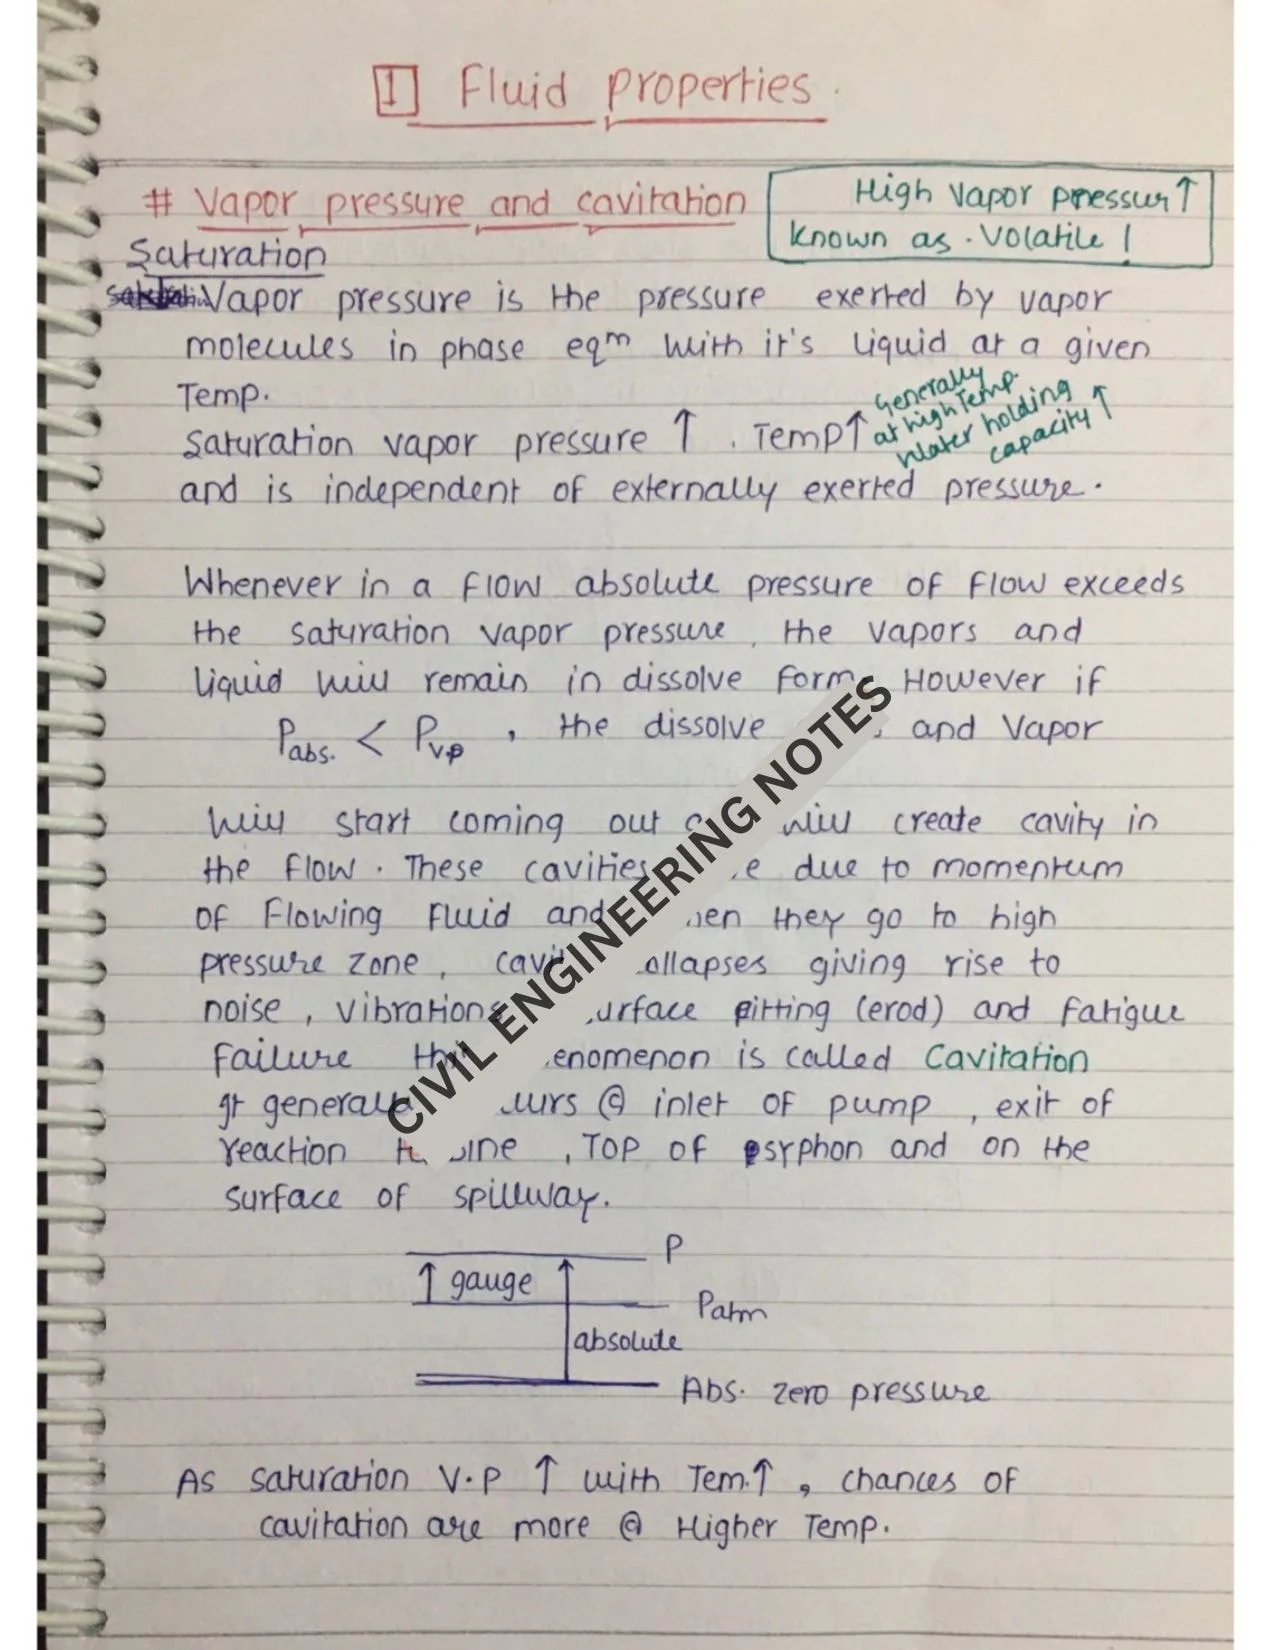 1 Fluid properties.
# Vapor pressure and cavitation
High Vapor pressur↑
known as. Volatile!
Saturation
Vapor pressure is the pressure exerted by vapor
molecules in phase eqm with it's liquid at a given
Temp.
Generally
at high Temp.
Water holding
capacity↑
Saturation vapor pressure ↑ . Temp↑
and is independent of externally exerted pressure.
Whenever in a flow absolute pressure of flow exceeds
the saturation vapor pressure, the vapors and
liquid will remain in dissolve form. However if
Pabs. < Pv.p , the dissolve and Vapor
will start coming out will create cavity in
the flow. These cavities due to momentum
of flowing fluid and they go to high
pressure zone, collapses giving rise to
noise, vibrations surface pitting (erod) and fatigue
failure this phenomenon is called Cavitation
It generally occurs @ inlet of pump, exit of
reaction turbine, Top of syphon and on the
surface of spillway.
P
↑ gauge
Patm
absolute
Abs. zero pressure
As saturation V.P ↑ with Tem.↑, chances of
cavitation are more @ Higher Temp.
CIVIL ENGINEERING NOTES